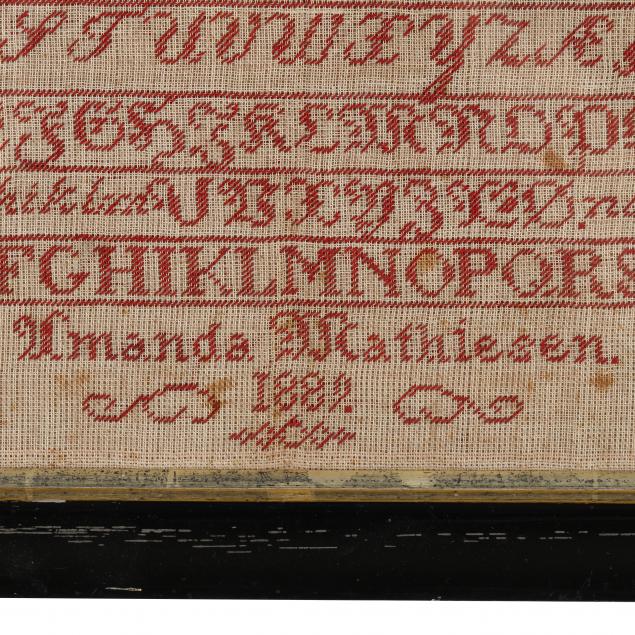 S T U V W X Y Z Æ
F G H J K L M N O P
hiklm U V X Y Z Æ Ø.
FGHIKLMNOPQRS
Amanda Mathiesen.
1889.